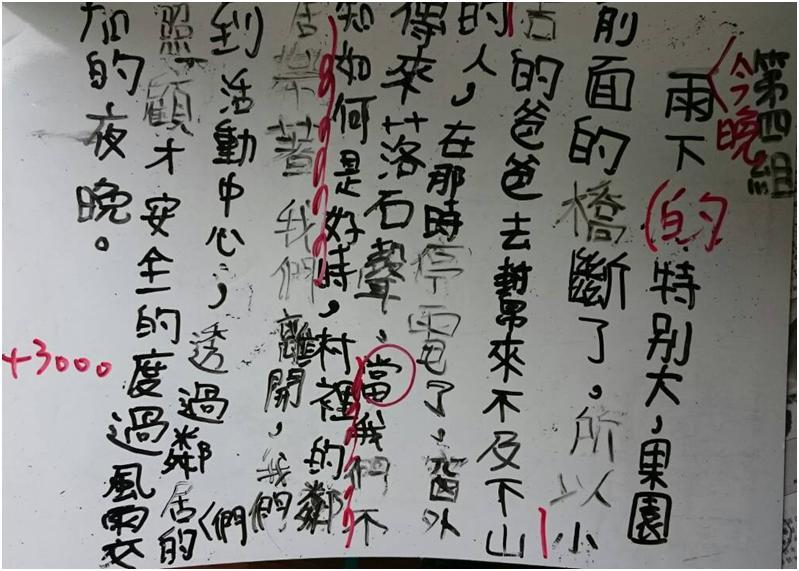 第四組
今晚
雨下(的)特別大,果園
前面的橋斷了。所以小
的爸爸去幫來不及下山
的人,在那時停電了,窗外
傳來落石聲,當我們不
知如何是好時,村裡的鄰
居帶著我們離開,我們
到活動中心,透過鄰居們的
照顧才安全的度過風雨交
加的夜晚。
+3000